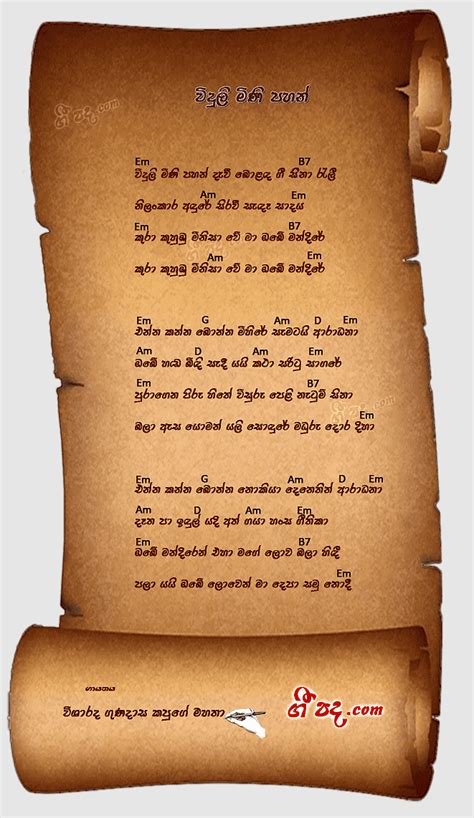 ගී පද.com
විදුලි මිණි පහන්
Em B7
විදුලි මිණි පහන් දැවී බොළඳ ගී සිනා රැලී
Am Em
තිලංකාර අඳුරේ සිරවී සැඳෑ සාදය
Em B7
කූරා කුහුඹු මිනිසා වේ මා ඔබේ මන්දිරේ
Am Em
කූරා කුහුඹු මිනිසා වේ මා ඔබේ මන්දිරේ
Em G Am D Em
එන්න කන්න බොන්න මිහිරේ සැමටයි ආරාධනා
Am D Am Em
ඔබේ හඬ බිඳි සැදී යයි කථා සරිටු සාගරේ
Em B7
පුරාගෙන පිරු තිතේ විසුරු පෙළි නැටුම් සිනා
Em
බලා ඇස යොමන් යලි සොඳුරේ මධුරු දොර දිහා
ගී පද.com
Em G Am D Em
එන්න කන්න බොන්න නොකියා දෙනෙතින් ආරාධනා
Am D Am Em
දෑත පා ඉඳුල් යදි අත් ගයා හංස ගීතිකා
Em B7
ඔබේ මන්දිරෙන් එහා මගේ ලොව බලා හිඳී
Em
පලා යයි ඔබේ ලොවෙන් මා දෙපා සමු නොදී
ගායනය
විශාරද ගුණදාස කපුගේ මහතා
ගී පද.com